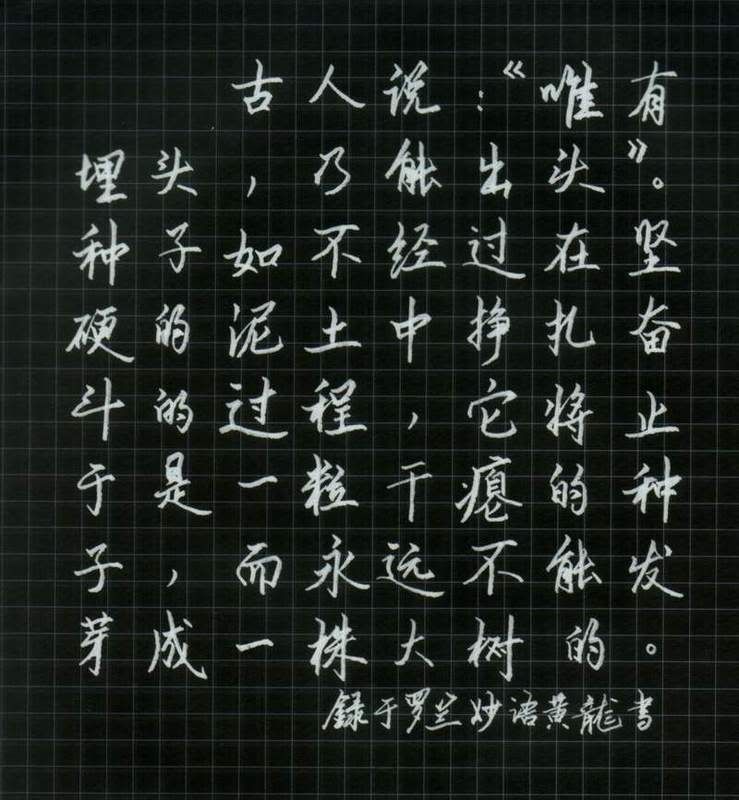 古人说:“唯有
埋头,乃能出头”。
种子如不经过在坚
硬的泥土中挣扎奋
斗的过程,它将止
于是一粒干瘪的种
子,而永远不能发
芽成一株大树的。
録于罗兰妙语黄龍书